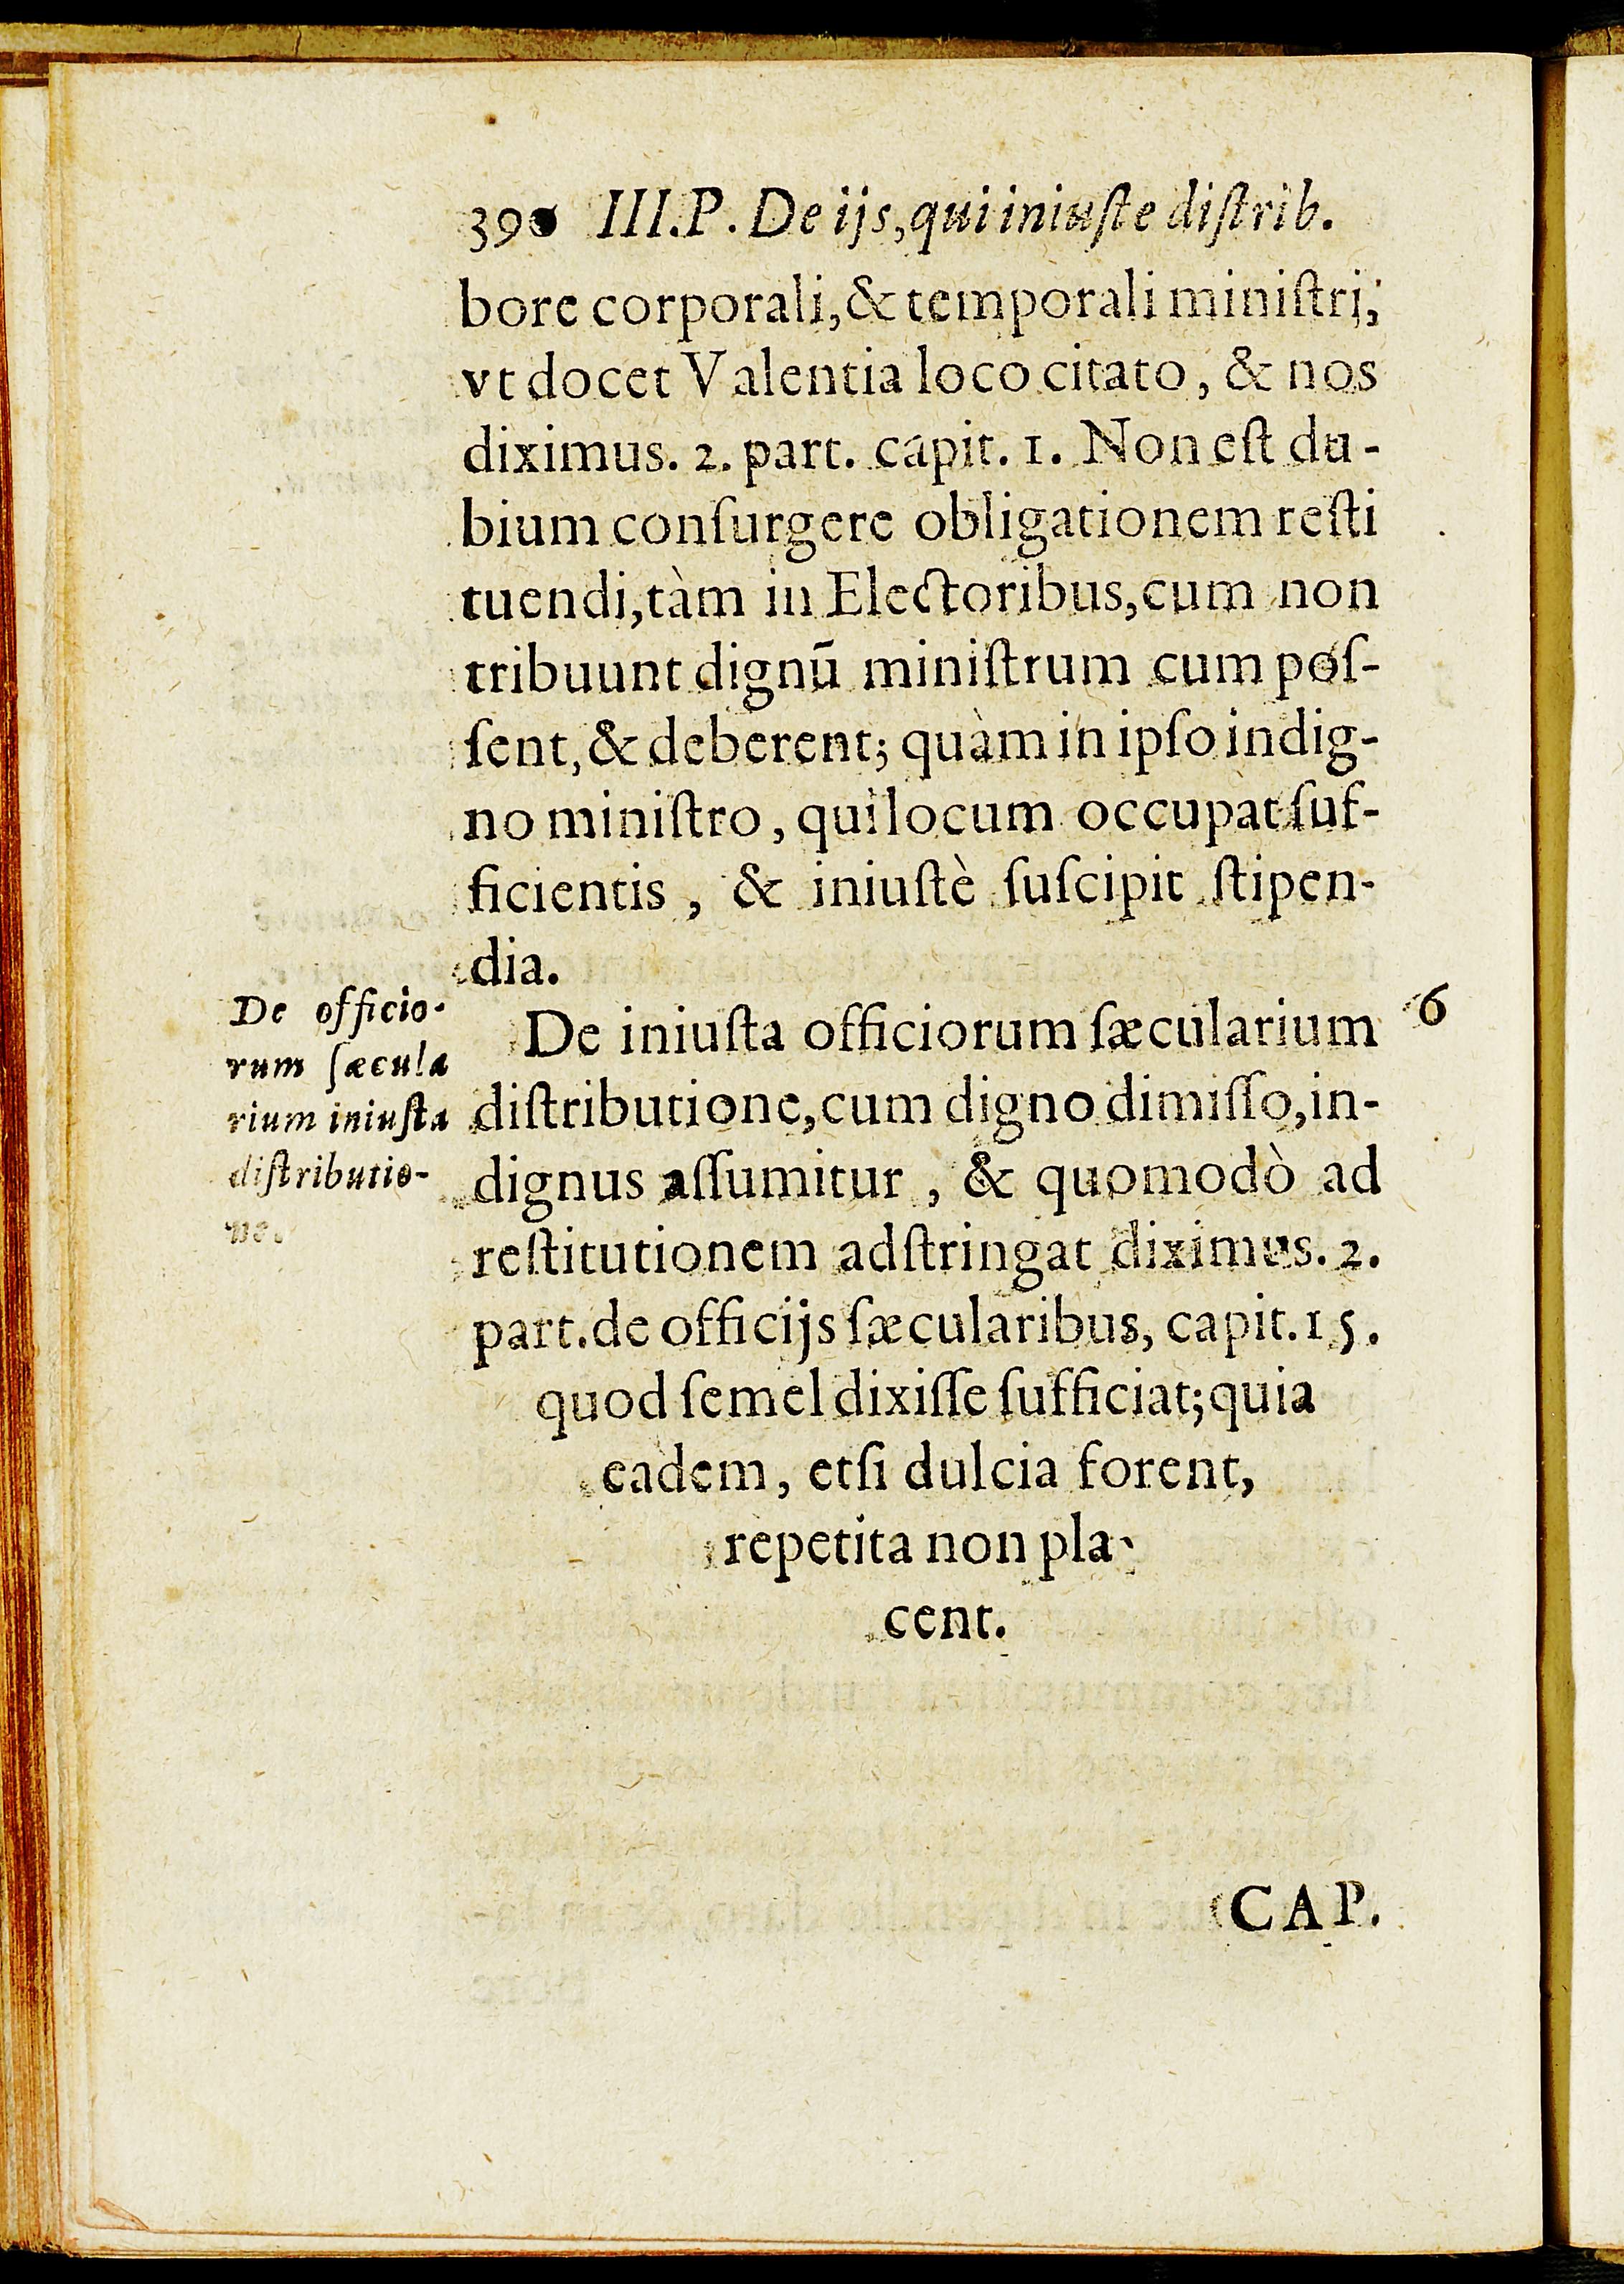 390 III.P. De ijs, qui iniuſte diſtrib.
bore corporali, & temporali miniſtri,
vt docet Valentia loco citato, & nos
diximus. 2. part. capit. 1. Non eſt du-
bium conſurgere obligationem reſti
tuendi, tàm in Electoribus, cum non
tribuunt dignū miniſtrum cum poſ-
ſent, & deberent; quàm in ipſo indig-
no miniſtro, qui locum occupat ſuf-
ficientis, & iniuſtè ſuſcipit ſtipen-
dia.
De officio-
rum ſæcula
rium iniuſta
diſtributio-
ne.
De iniuſta officiorum ſæcularium
6
diſtributione, cum digno dimiſſo, in-
dignus aſſumitur, & quomodò ad
reſtitutionem adſtringat diximus. 2.
part. de officijs ſæcularibus, capit. 15.
quod ſemel dixiſſe ſufficiat; quia
eadem, etſi dulcia forent,
repetita non pla-
cent.
CAP.